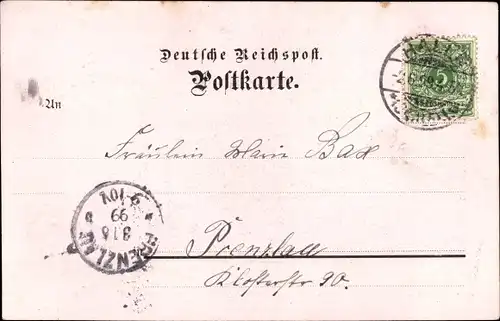 Deutsche Reichspost.
Postkarte.
5
An
Fräulein Marie Bax
Prenzlau
Klosterstr 90.
PRENZLAU
99